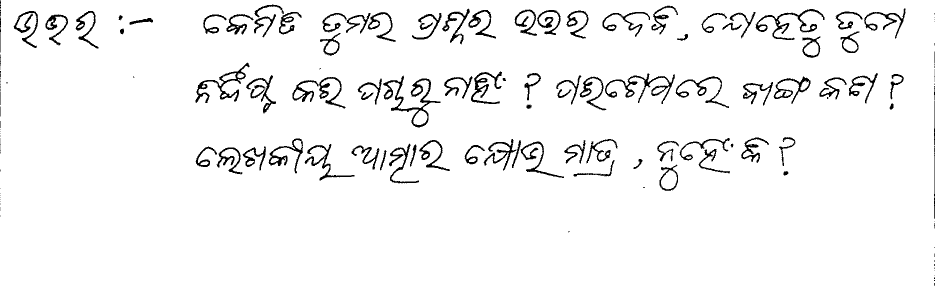 ଉତ୍ତର :- କେମିତି ତୁମର ପ୍ରଶ୍ନର ଉତ୍ତର ଦେବି, ଯେହେତୁ ତୁମେ
ନିର୍ଦ୍ଦିଷ୍ଟ କରି ପଚାରୁନାହଁ ? ପରିଶେଷରେ ବ୍ୟଙ୍ଗ କବିତା ?
ଲେଖକୀୟ ଆତ୍ମାର ଯୋଡି ମାତ୍ର, ନୁହେଁ କି ?